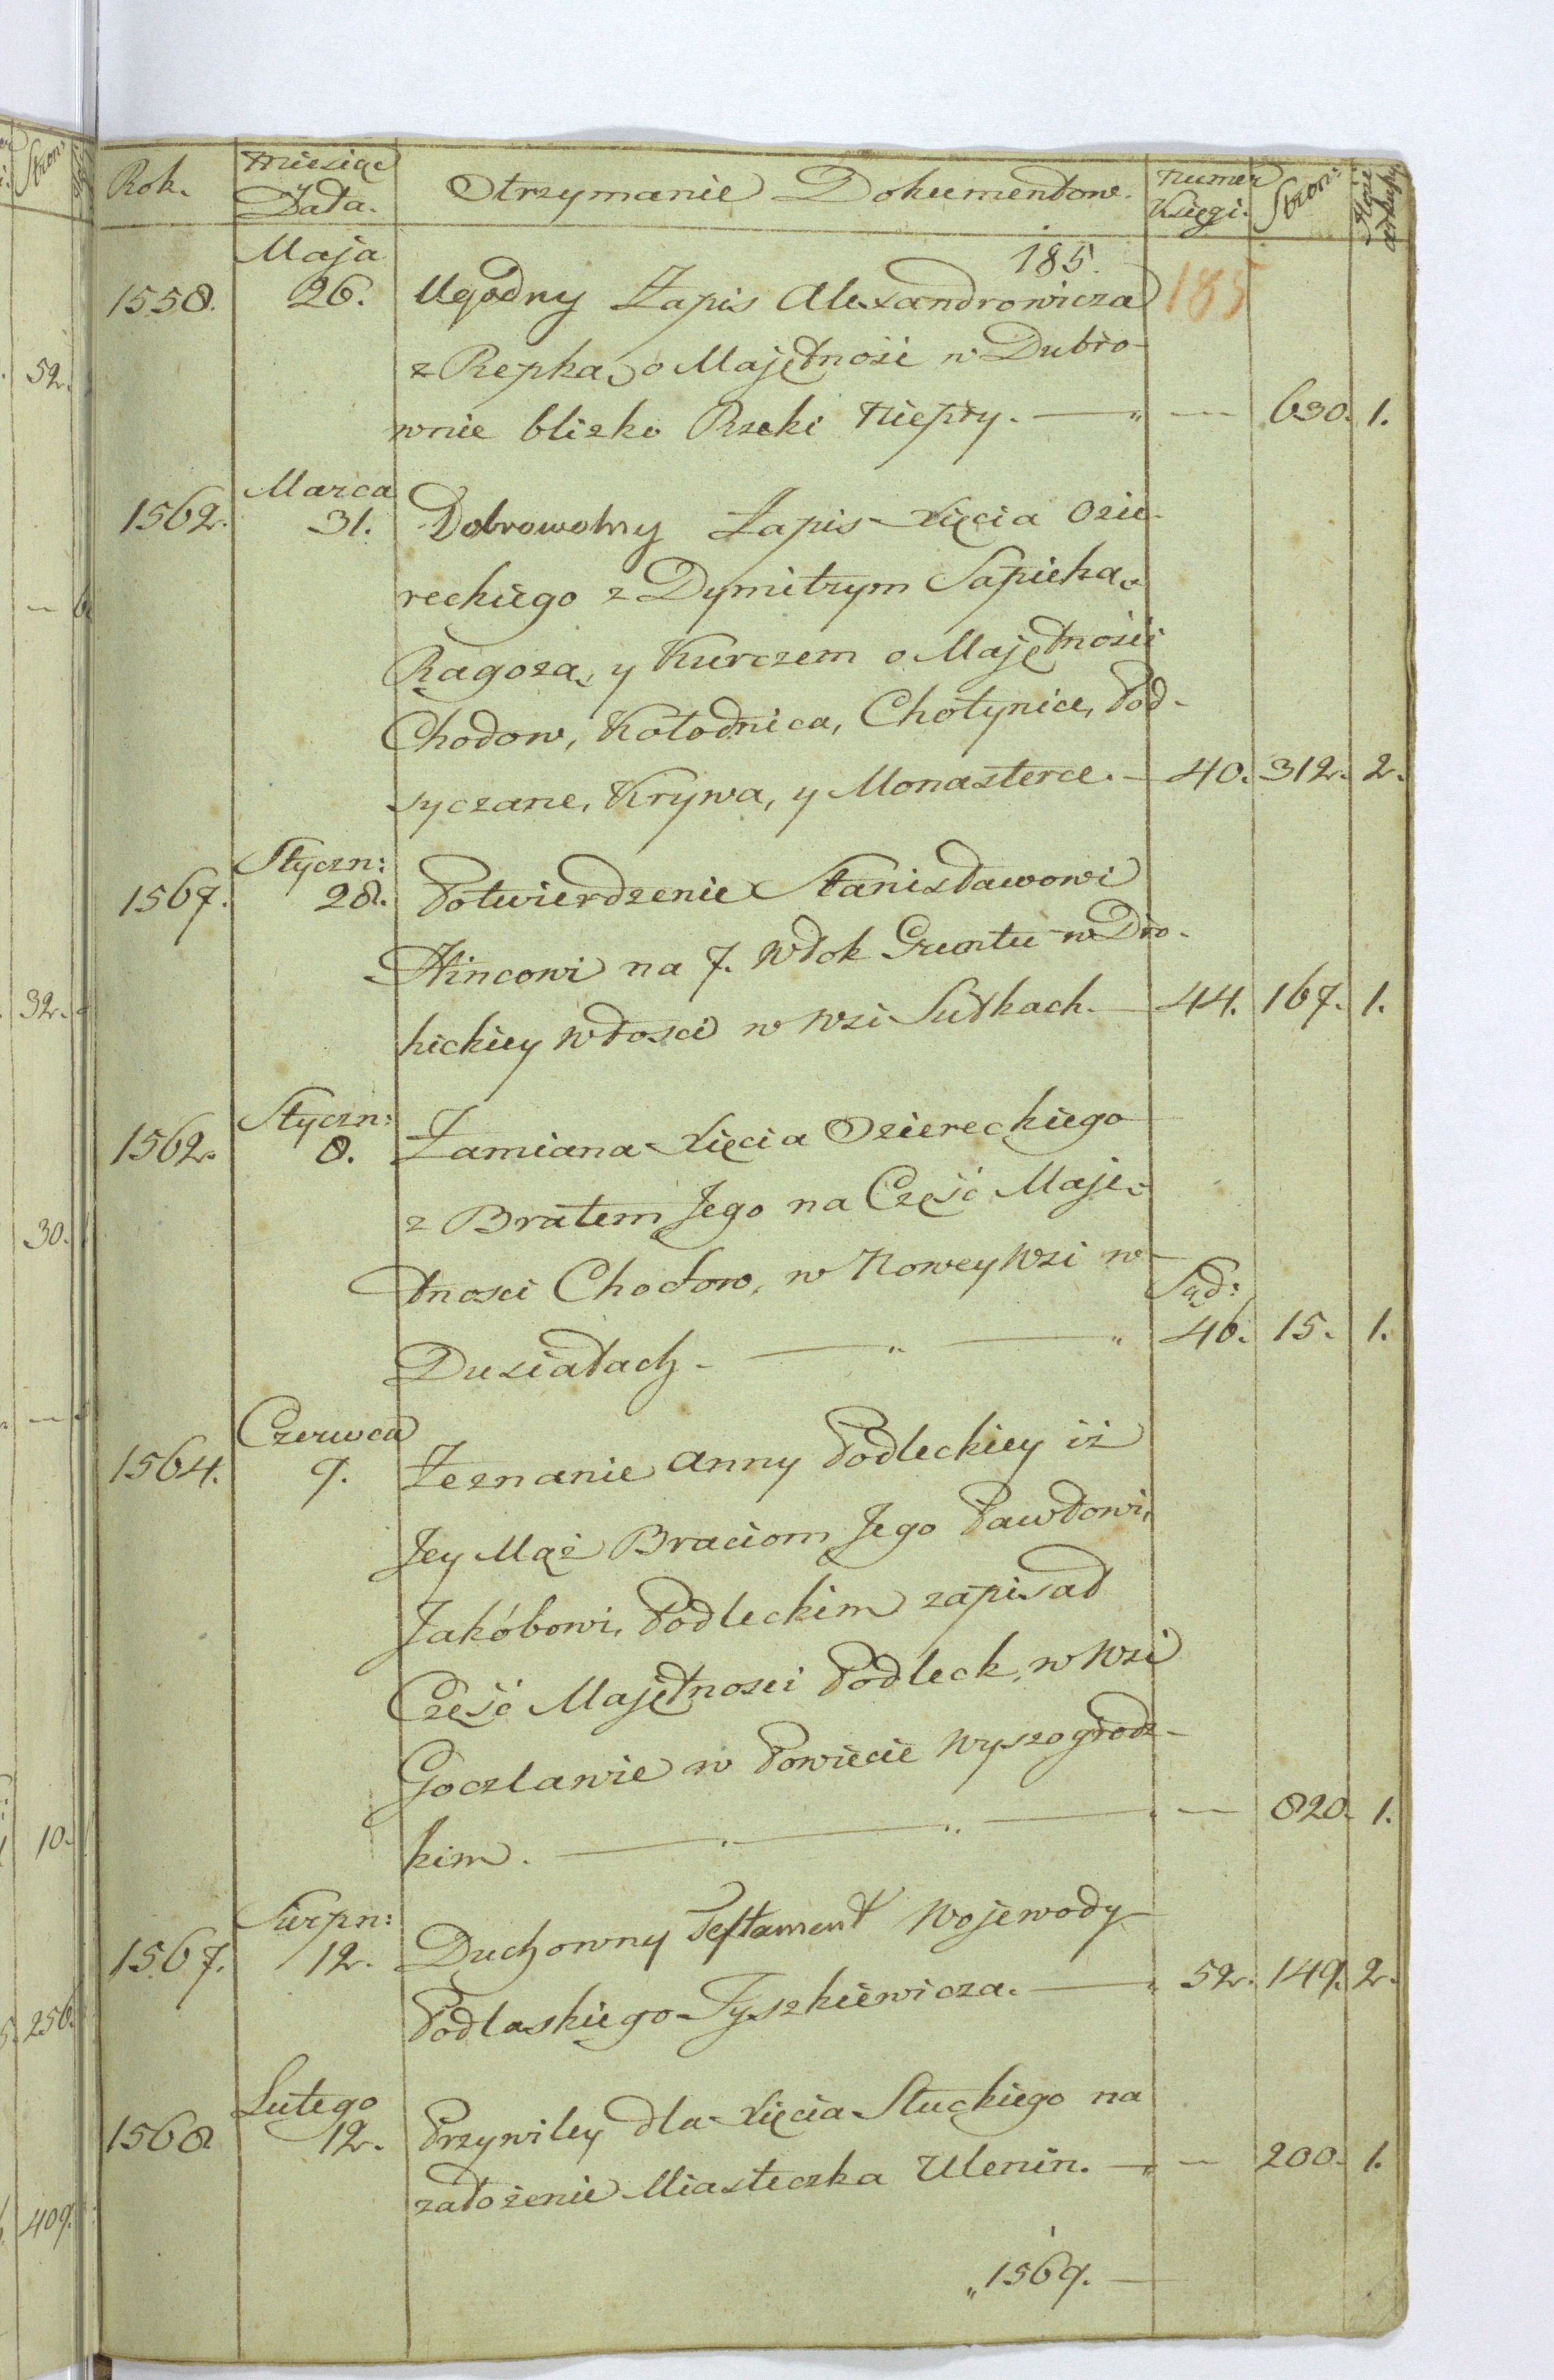 Rok. Miesiąc y Data. Otrzymanie Dokumentow. Numer Księgi. Stron:
185.
185
Maja
1558. 26. Ugodny Zapis Alexandrowicza
z Repką, o Majętność w Dubro-
wnie blizko Rzeki Niepry. — — 630. 1.
Marca
1562. 31. Dobrowolny Zapis Xięcia Ozie-
reckiego z Dymitrym Sapiehą,
Ragozą, y Kurczem o Majętności
Chodow, Kołodnica, Chotynice, Pod-
syczane, Krywa, y Monasterce. — 40. 312. 2.
Styczn:
1567. 28. Potwierdzenie Stanisławowi
Hincowi na 7. Włok Gruntu w Dro-
hickiey włosci w Wsi Sutkach. — 44. 167. 1.
Styczn:
1562. 8. Zamiana Xięcia Oziereckiego
z Bratem Jego na Część Maję-
tnosci Chodow, w Nowey Wsi w
Sąd:
Dusiatach. — " — " 46. 15. 1.
Czerwca
1564. 9. Zeznanie Anny Podleckiey iż
Jey Mąż Braciom Jego Pawłowi,
Jakóbowi, Podleckim zapisał
Część Majętnosci Podleck, w Wsi
Goczlawie w Powiecie Wyszogrodz-
kim. — " — " — " — 820. 1.
Sierpn:
1567. 12. Duchowny Testament Wojewody
Podlaskiego Tyszkiewicza. — " 52. 149. 2.
Lutego
1568 12. Przywiley dla Xięcia Słuckiego na
założenie Miasteczka Ulenin. — " — 200. 1.
"1569. —
52.
32.
30.
10.
256.
409.